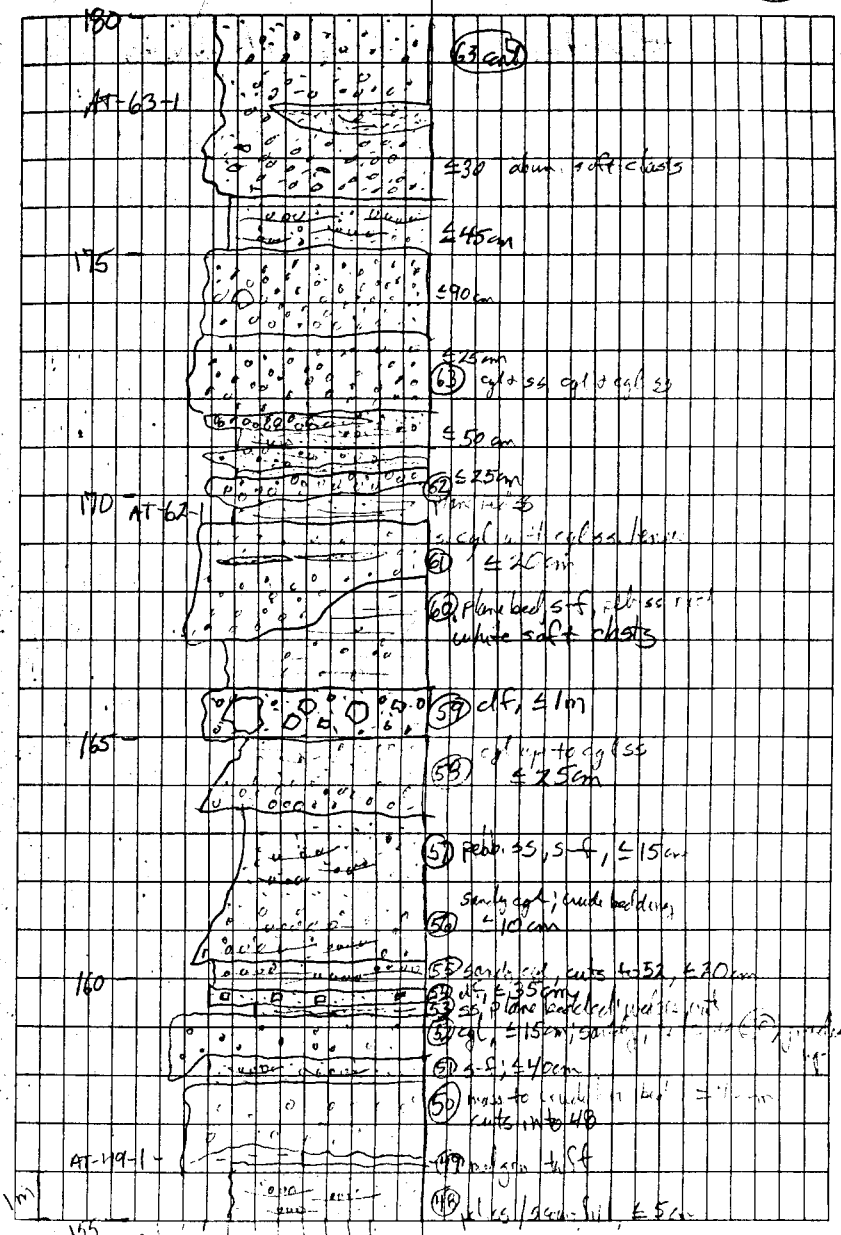 180
63 cont
AT-63-1
≤30 abun. soft clasts
≤45cm
175
≤90cm
≤25cm
63 cgl+ss, cgl+cgl ss
≤50 cm
62 ≤25cm
170 AT-62-1
61 ≤20cm
60 plane bed, s-f,
white soft clasts
59 df, ≤1m
165
cgl up to cgl ss
58 ≤25cm
57 pebb. ss, s-f, ≤15cm
sandy cgl; crude bedding
56 ≤10cm
55 sandy cgl, cuts to 52, ≤20cm
160
54 df, ≤35cm
53 ss, plane bedded,
52 cgl, ≤15cm;
51 s-f; ≤40cm
50 mass to
cuts into 48
AT-49-1
49 tuff
48 ≤5cm
1m
155